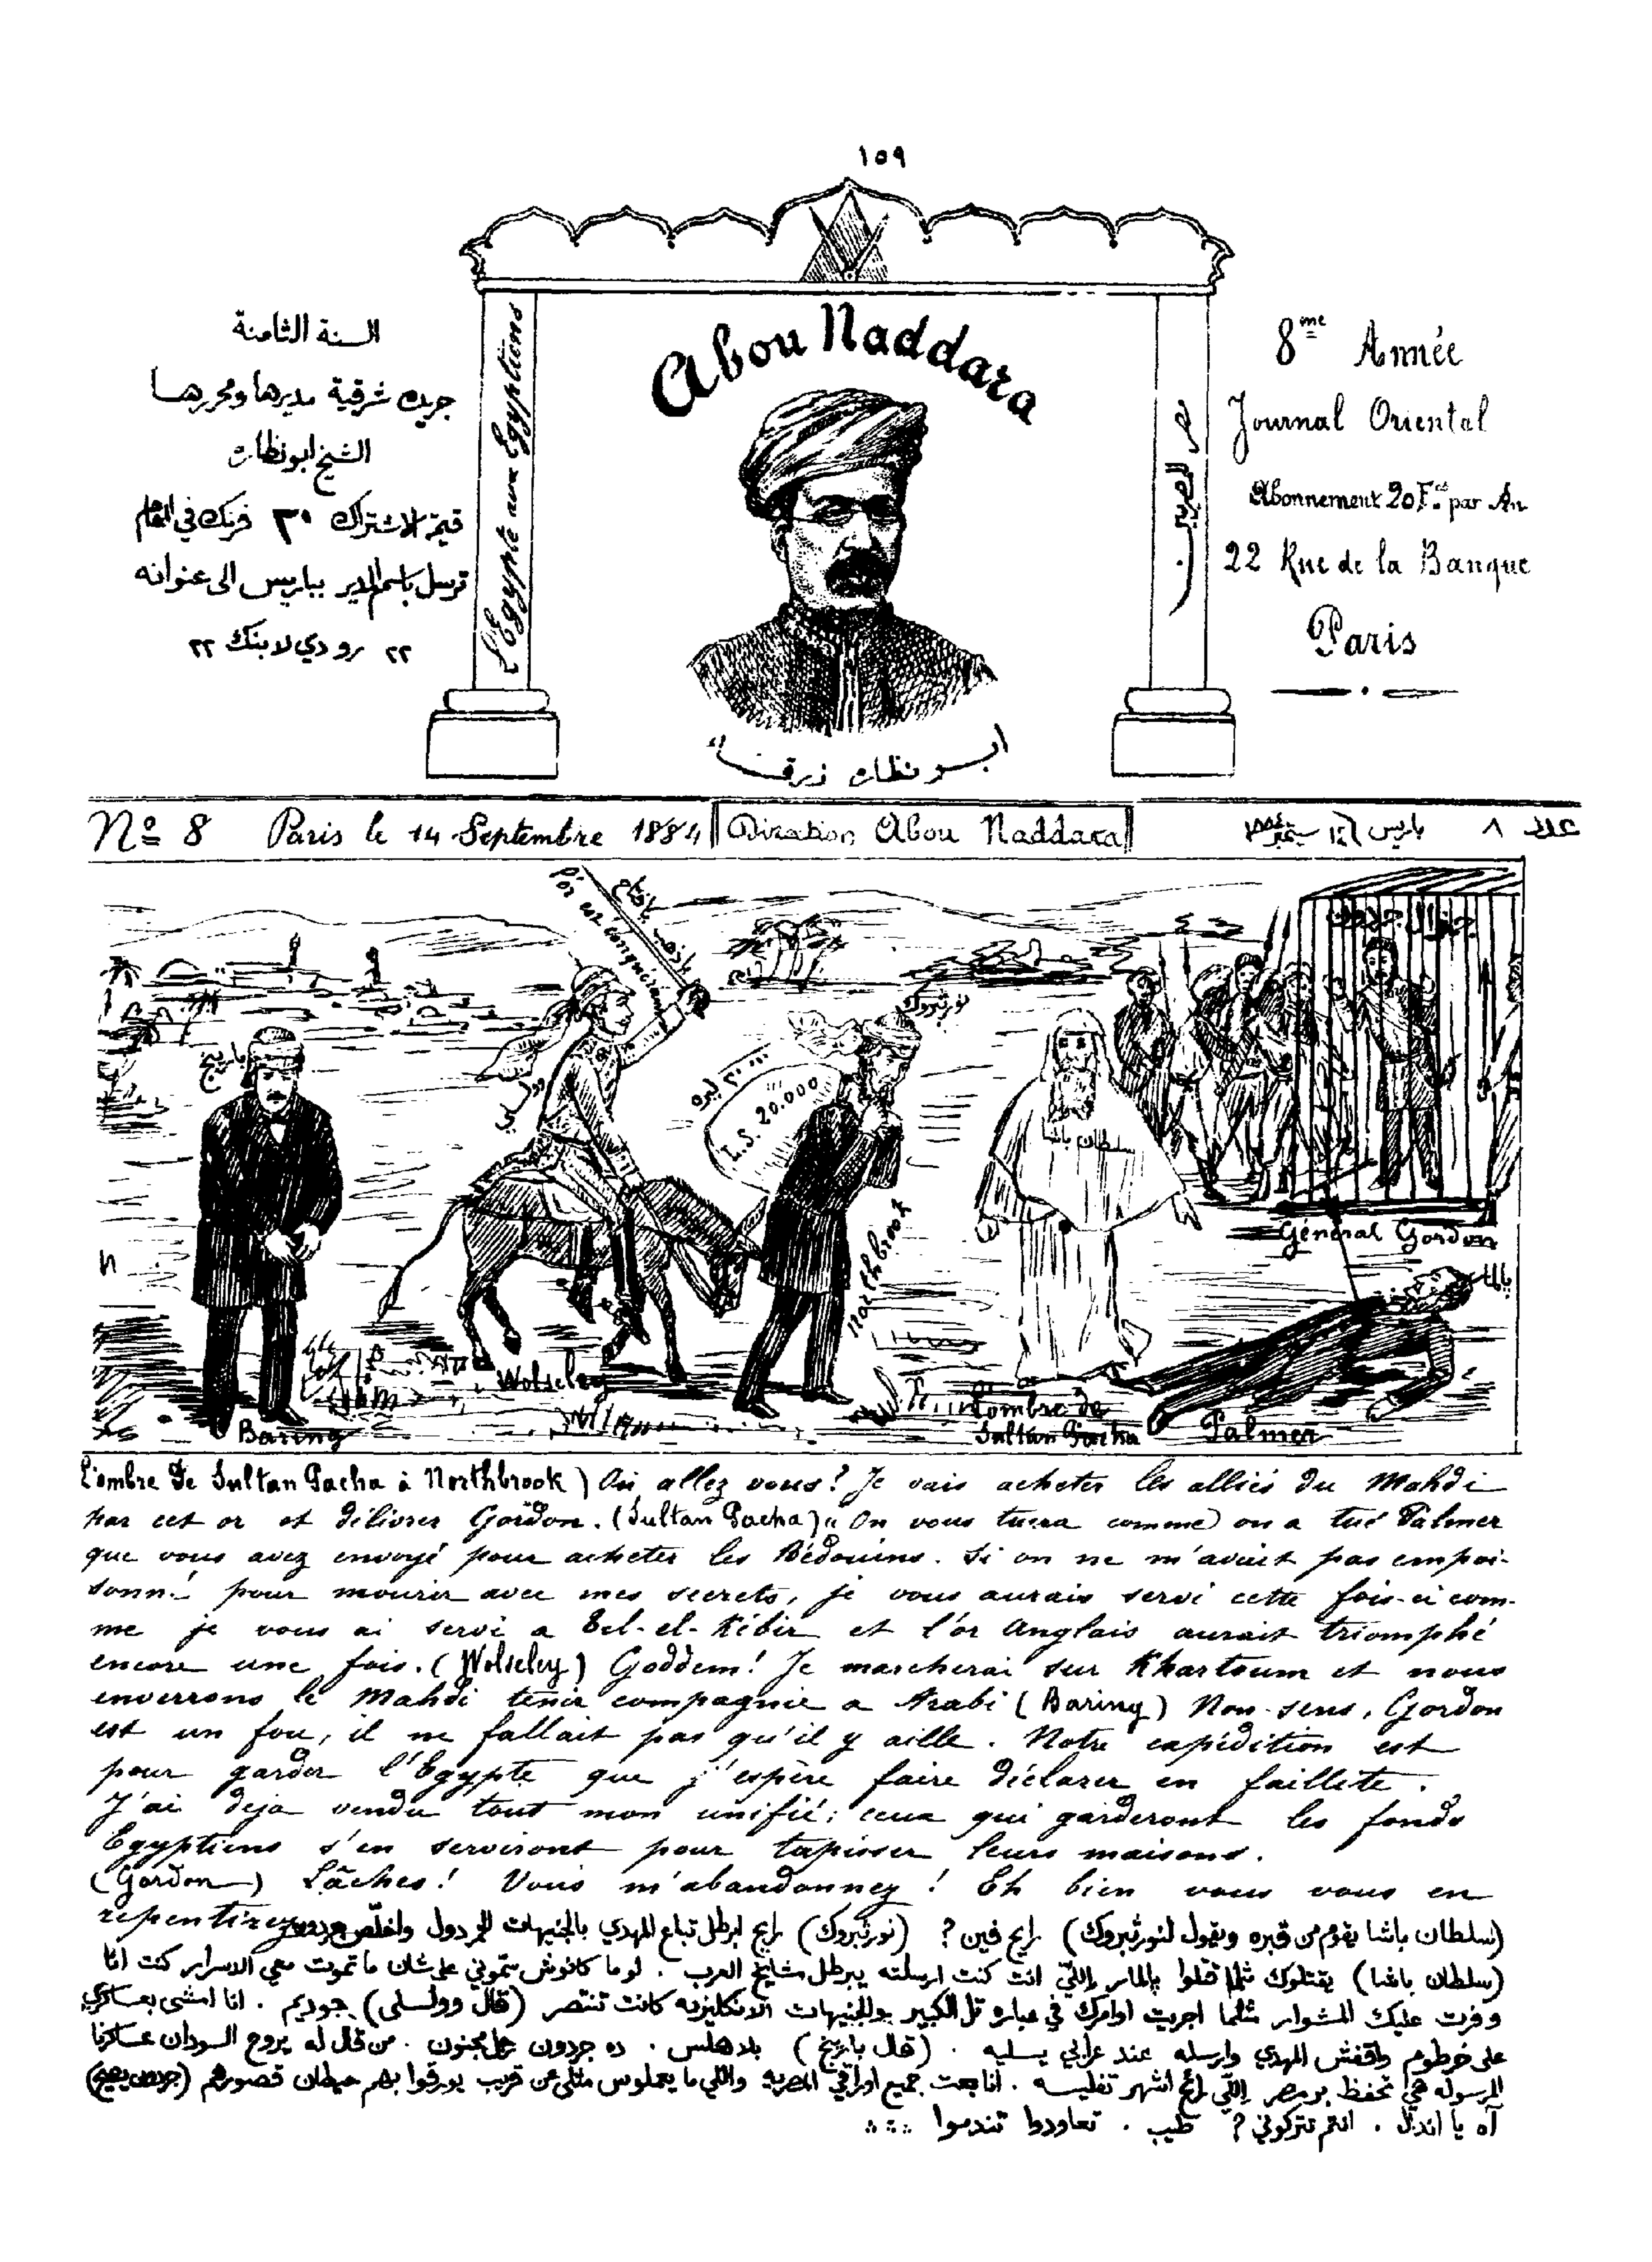 ١٥٩
السنة الثامنة
جريدة شرقية مديرها ومحررها
الشيخ ابو نظارة
قيمة الاشتراك ٣٠ فرنك في العام
ترسل باسم المدير بباريس الى عنوانه
٢٢ رو دي لا بنك ٢٢
L'Egypte aux Egyptiens
Abou Naddara
ابو نظاره زرقاء
مصر للمصريين
8me Année
Journal Oriental
Abonnement 20 Fcs par An
22 Rue de la Banque
Paris
No 8 Paris le 14 Septembre 1884
Direction Abou Naddara
عدد ٨ باريس ١٤ سبتمبر ١٨٨٤
L'or est conquérant
بارينج
وولسلي
نورثبروك
L.S. 20.000
سلطان باشا
جنرال جردون
Général Gordon
بالمر
Northbrook
Wolseley
Baring
L'ombre de
Sultan Pacha
Palmer
L'ombre de Sultan Pacha à Northbrook) Où allez vous? Je vais acheter les alliés du Mahdi
par cet or et délivrer Gordon. (Sultan Pacha) On vous tuera comme on a tué Palmer
que vous avez envoyé pour acheter les Bédouins. Si on ne m'avait pas empoi-
sonné pour mourir avec mes secrets, je vous aurais servi cette fois-ci com-
me je vous ai servi a Tel-el-Kébir et l'or Anglais aurait triomphé
encore une fois. (Wolseley) Goddem! Je marcherai sur Khartoum et nous
enverrons le Mahdi tenir compagnie a Arabi (Baring) Non-sens, Gordon
est un fou, il ne fallait pas qu'il y aille. Notre expédition est
pour garder l'Egypte que j'espère faire déclarer en faillite.
J'ai deja vendu tout mon unifié; ceux qui garderont les fonds
Egyptiens s'en serviront pour tapisser leurs maisons.
(Gordon) Lâches! Vous m'abandonnez! Eh bien vous vous en
repentirez
(سلطان باشا يقوم من قبره ويقول لنورثبروك) رايح فين؟ (نورثبروك) رايح ابرطل تباع المهدي بالجنيهات واخلّص جردون
(سلطان باشا) يقتلوك مثلما قتلوا بالمر اللّي انت كنت ارسلته يبرطل مشايخ العرب. لو ما كانوش سمّوني علشان ما تموت معي الاسرار كنت انا
وفرت عليك المشوار مثلما اجريت اوامرك في عبارة تل الكبير والجنيهات الانكليزيه كانت تنتصر (قال وولسلي) جوديم. انا امشي بعساكري
على خرطوم واقفش المهدي وارسله عند عرابي يسليه. (قال بارينج) بلا هلس. ده جردون رجل مجنون. من قال له يروح السودان عساكرنا
المرسوله هي تحفظ بر مصر اللّي رايح اشهر تفليسه. انا بعت جميع اوراقي المصريه واللي ما يعملوش مثلي عن قريب يورقوا بهم حيطان قصورهم (جردون يصيح)
آه يا اندال. انتم تتركوني؟ طيب. تعاودوا تندموا